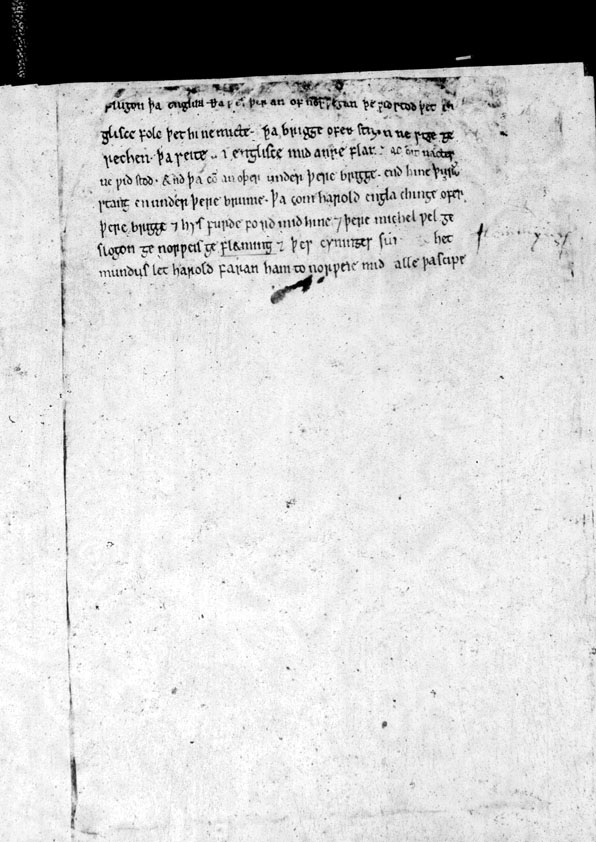 flugon þa engliſca ƿeſ þer an of norƿegan þe ƿiðſtod þet en
gliſce folc þet hi ne micte · þa brigge oferſtigan ne ſige ge
rechen · þa ſeite engliſce mid anre flane · ac hit nactes
ne ƿidſtod · & þa cō an oþer under þere brigge · end hine þurh
ſtang en under þere brunie · þa com harold engla chinge ofer
þere brigge ⁊ hyſ furde forð mid hine ⁊ þere michel ƿel ge
ſlogon ge norƿeiſ ge flæming ⁊ þes cyninges het
mundus let harold faran ham to norƿeie mid alle þa ſcipe